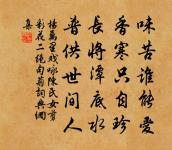 味苦誰能愛
香寒只自珍
長將潭底水
普供世間人
楊萬里戲詠陳氏女剪
彩花二絕句菊詞典網
集